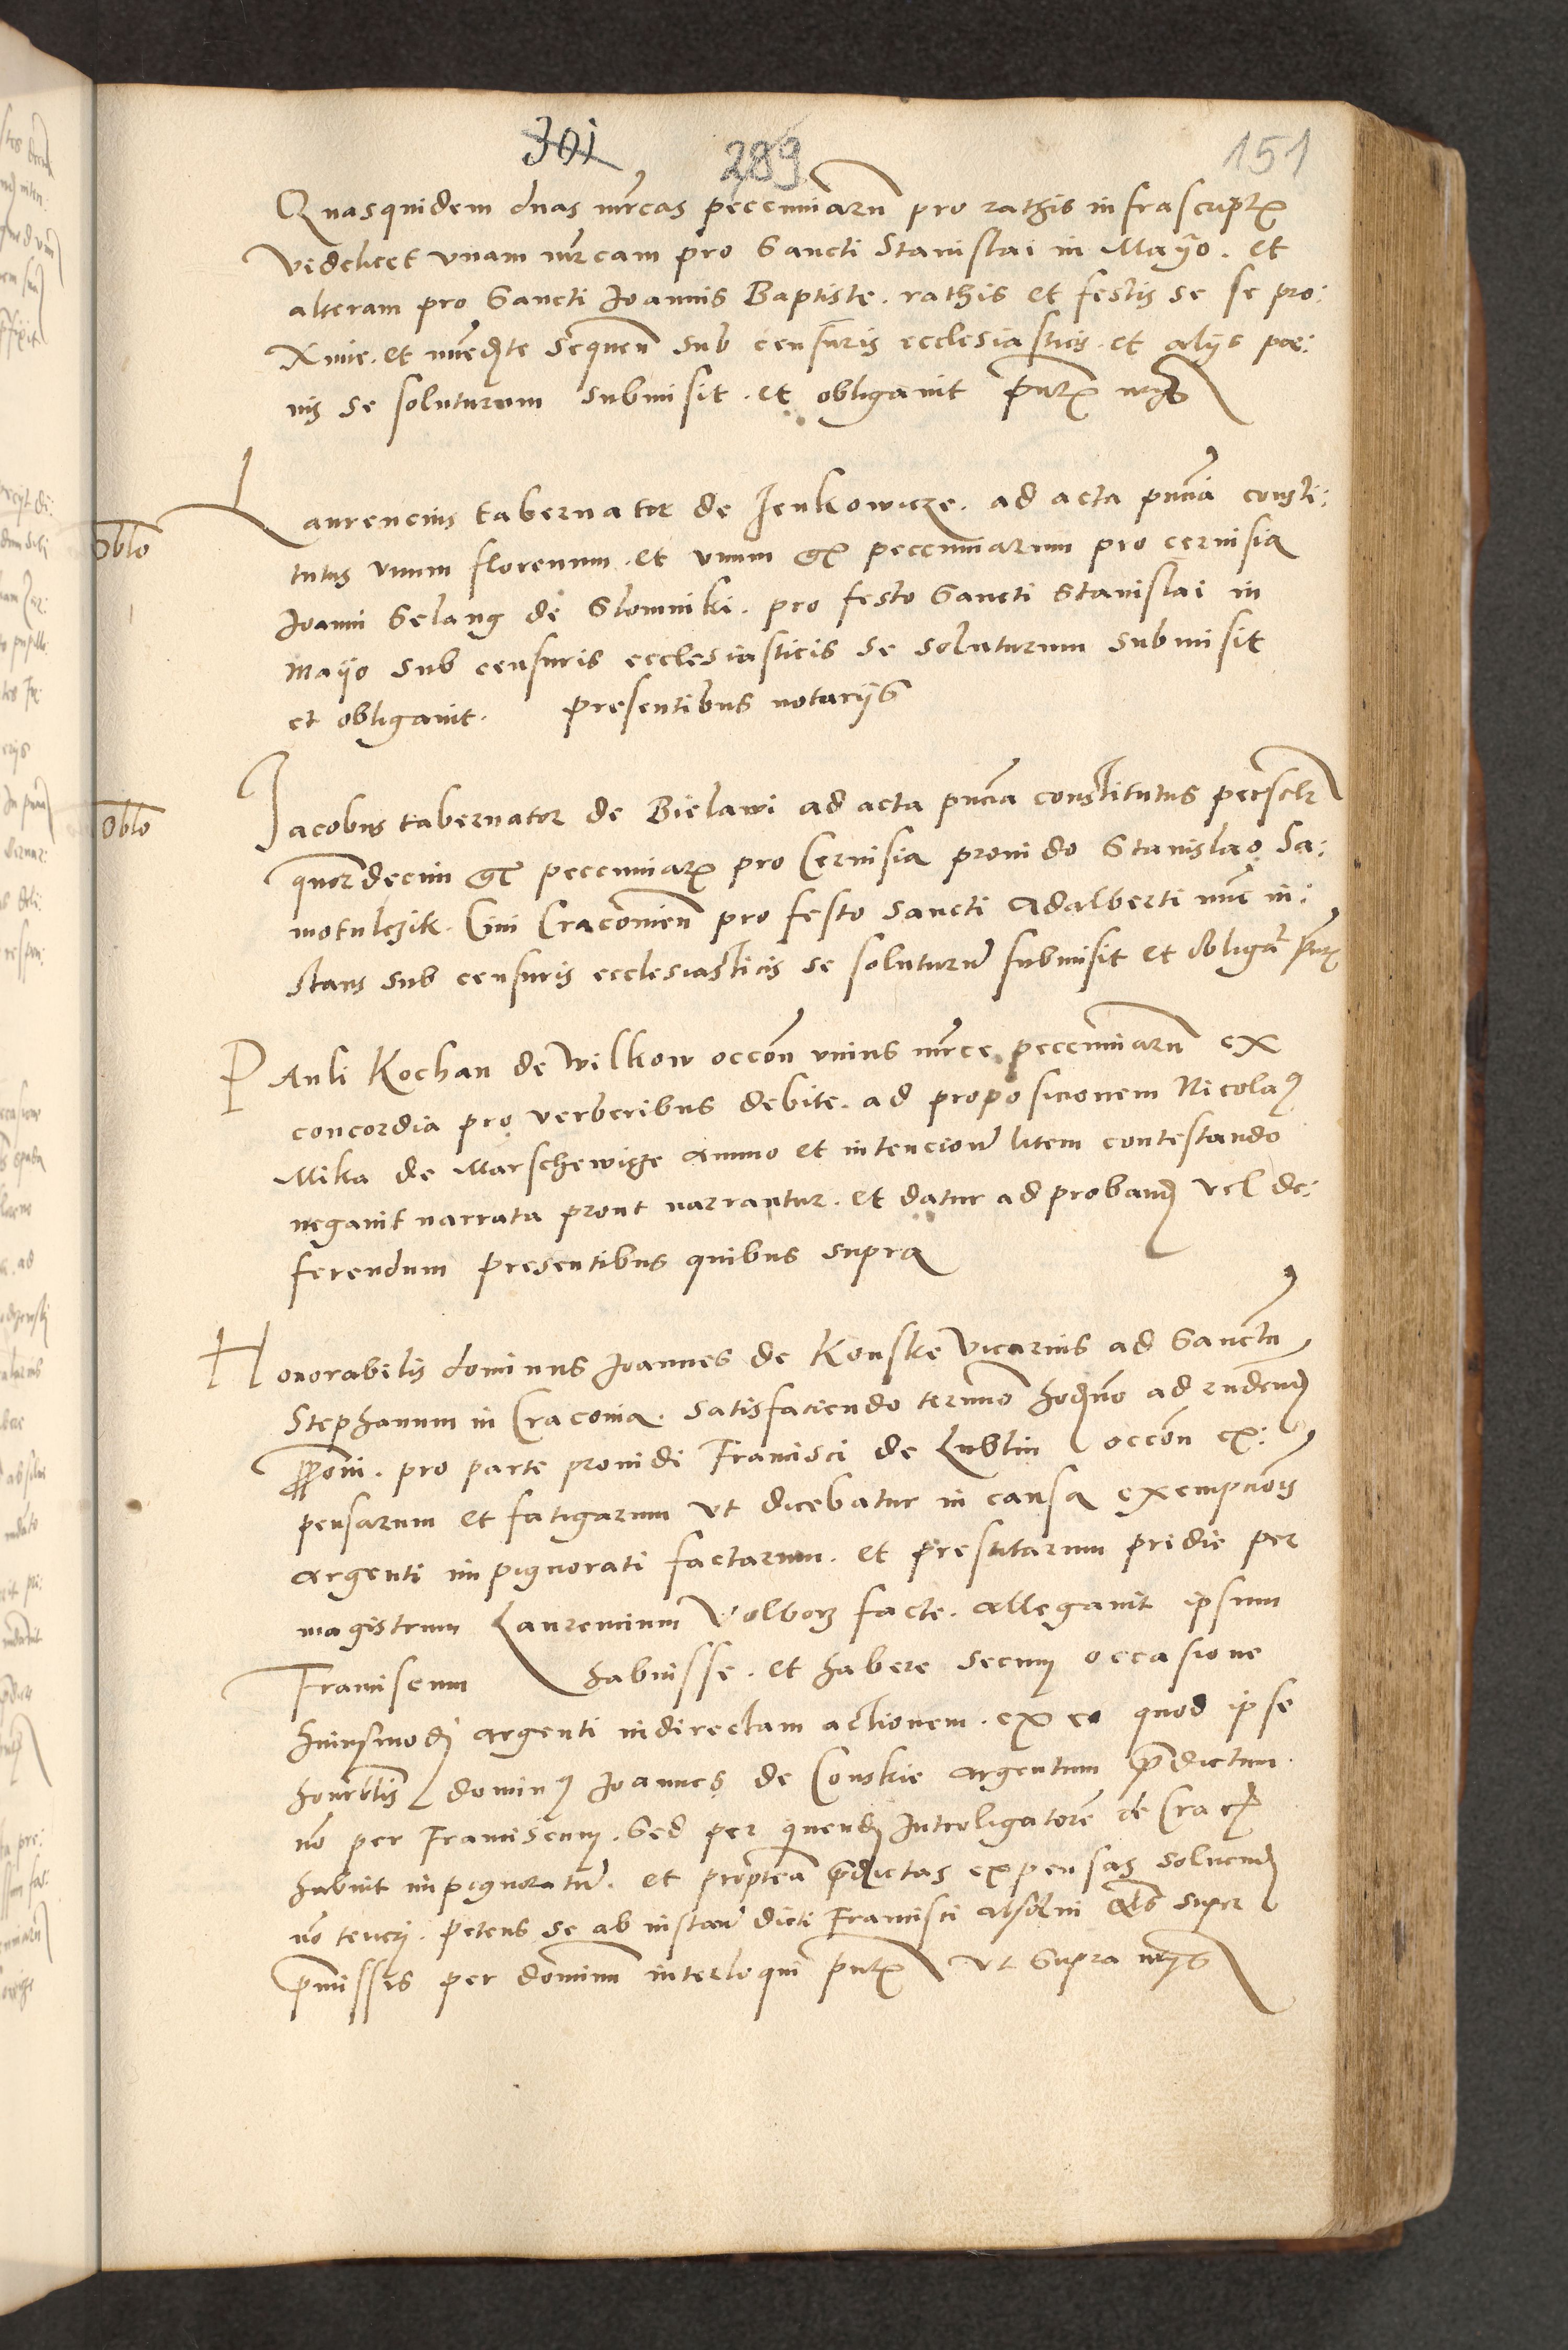 301 289 151
Quasquidem duas mrcas pecuniarum pro rathis infrascriptis
videlicet unam mrcam pro Sancti Stanislai in Mayo. et
alteram pro Sancti Joannis Baptiste. rathis et festis se se pro:
xime. et immediate sequen sub censuris ecclesiasticis. et alijs poe:
nis se soluturum submisit. et obligauit
Laurencius tabernator de Jenkowicze. ad acta pncia consti:
oblo
tutus unum florenum. et unum gr pecuniarum pro ceruisia
Joanni Selang de Slomniki. pro festo Sancti Stanislai in
Mayo sub censuris ecclesiasticis se soluturum submisit
et obligauit. presentibus notarijs
Jacobus tabernator de Bielawi ad acta pncia constitutus
oblo
quordecim gr pecuniar pro Ceruisia prouido Stanislao Sa:
motulczik. Ciui Cracouien pro festo Sancti Adalberti nunc in:
stans sub censuris ecclesiasticis se soluturum submisit et obligat
Pauli Kochan de Wilkow occon unius mrce pecuniarum ex
concordia pro verberibus debite. ad proposicionem Nicolaus
Mika de Marschewicze animo et intencione litem contestando
negauit narrata prout narrantur. et datur ad proband vel de:
ferendum presentibus quibus supra
Honorabilis dominus Joannes de Konske Vicarius ad Sanctum
Stephanum in Cracouia. satisfaciendo termino hodierno ad rndend
pponi. pro parte prouidi Francisci de Lublin occon ex:
pensarum et fatigarum ut dicebatur in causa exempcionis
argenti impignorati factarum. et prestitarum pridie per
magistrum Laurencium Volborz facte. allegauit ipsum
Franciscum habuisse. et habere secum occasione
huiusmodi argenti indirectam actionem. ex eo quod ipse
honrblis dominus Joannes de Conskie argentum predictum
non per Franciscum. sed per quendam Introligatorem de Crac
habuit impignoratum. et propterea predictas expensas soluend
non teneri. petens se ab instan dicti Francisci absolui super
premissis per dominum interloqui ut supra